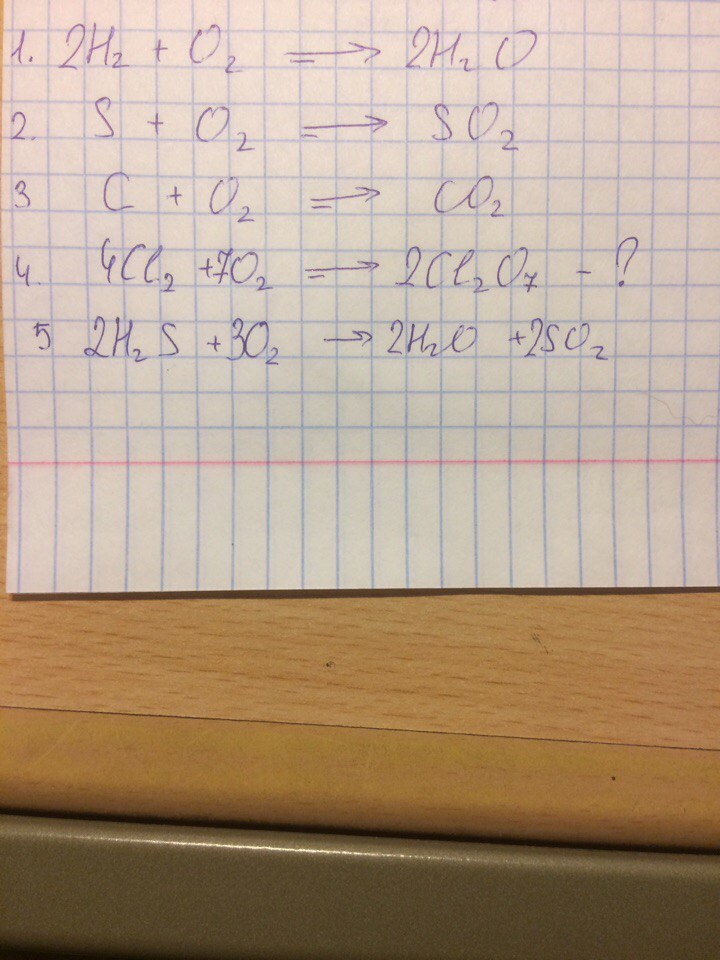 1. 2H₂ + O₂ ⟹ 2H₂O
2. S + O₂ ⟹ SO₂
3 C + O₂ ⟹ CO₂
4. 4Cl₂ +7O₂ ⟹ 2Cl₂O₇ - ?
5 2H₂S +3O₂ → 2H₂O +2SO₂